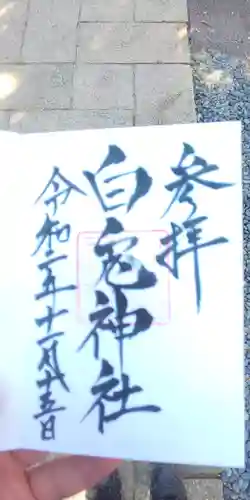 参拝
白兎神社
令和二年十一月十五日